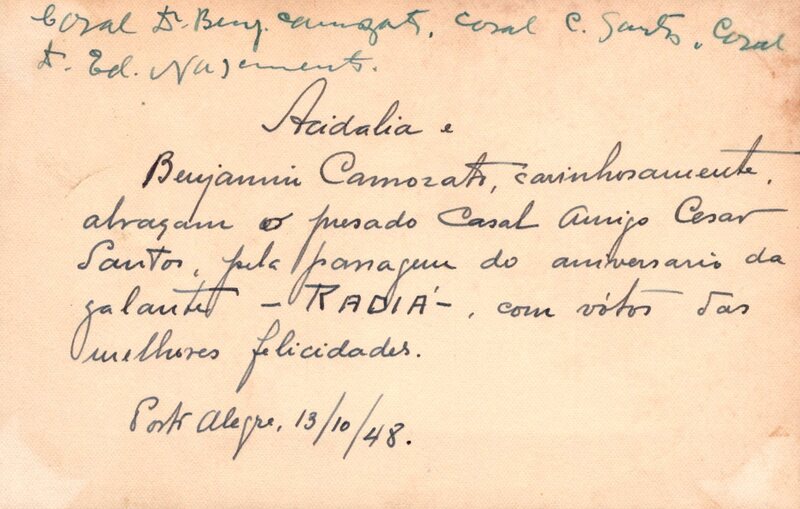 Casal Dr. Benj. Camozato, Casal C. Santos, Casal
Dr. Ed. Nascimento.
Acidalia e
Benjamin Camozato, carinhosamente,
abraçam o presado Casal Amigo Cesar
Santos, pela passagem do aniversario da
galante - RADIÁ -, com vótos das
melhores felicidades.
Porto Alegre, 13/10/48.